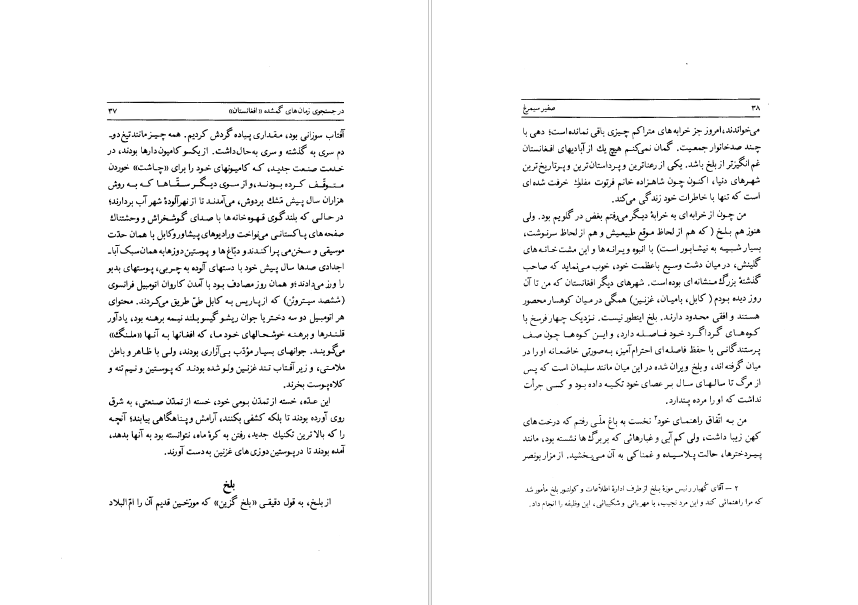 در جستجوی زمان‌های گمشده «افغانستان» ۳۷
آفتاب سوزانی بود، مقداری پیاده گردش کردیم. همه چیز مانند تیغ دو-
دم سری به گذشته و سری به حال داشت. از یکسو کامیون‌دارها بودند، در
خدمت صنعت جدید، که کامیونهای خود را برای «چاشت» خوردن
متوقف کرده بودند، و از سوی دیگر سقّاها که به روش
هزاران سال پیش مَشک بردوش، می‌آمدند تا از نهر آلودهٔ شهر آب بردارند؛
در حالی که بلندگوی قهوه‌خانه‌ها با صدای گوشخراش و وحشتناک
صفحه‌های پاکستانی می‌نواخت و رادیوهای پیشاور و کابل با همان حدّت
موسیقی و سخن می‌پراکندند و دبّاغ‌ها و پوستین دوزها به همان سبک آبا-
اجدادی صدها سال پیش خود با دستهای آلوده به چربی، پوستهای بدبو
را ورز می‌دادند؛ و همان روز مصادف بود با آمدن کاروان اتومبیل فرانسوی
(ششصد سیتروئن) که از پاریس به کابل طیّ طریق می‌کردند. محتوای
هر اتومبیل دو سه دختر یا جوان ریشو گیسو بلند نیمه برهنه بود، یادآور
قلندرها و برهنه خوشحالهای خود ما، که افغانها به آنها «ملنگ»
می‌گویند. جوانهای بسیار مؤدّب بی‌آزاری بودند، ولی با ظاهر و باطن
ملامتی، و زیر آفتاب تند غزنین ولو شده بودند که پوستین و نیم تنه و
کلاه پوست بخرند.
این عدّه، خسته از تمدّن بومی خود، خسته از تمدّن صنعتی، به شرق
روی آورده بودند تا بلکه کشفی بکنند، آرامش و پناهگاهی بیابند؛ آنچه
را که بالاترین تکنیک جدید، رفتن به کرهٔ ماه، نتوانسته بود به آنها بدهد،
آمده بودند تا در پوستین دوزی‌های غزنین به دست آورند.
بلخ
از بلخ، به قول دقیقی «بلخ گزین» که مورّخین قدیم آن را امّ‌البلاد
۳۸ صفیر سیمرغ
می‌خواندند، امروز جز خرابه‌های متراکم چیزی باقی نمانده است؛ دهی با
چند صد خانوار جمعیت. گمان نمی‌کنم هیچ یک از آبادیهای افغانستان
غم انگیزتر از بلخ باشد. یکی از رعناترین و پرداستان‌ترین و پرتاریخ‌ترین
شهرهای دنیا، اکنون چون شاهزاده خانم فرتوت مفلوک خرفت شده‌ای
است که تنها با خاطرات خود زندگی می‌کند.
من چون از خرابه‌ای به خرابهٔ دیگر می‌رفتم بغض در گلویم بود. ولی
هنوز هم بلخ ( که هم از لحاظ موقع طبیعیش و هم از لحاظ سرنوشت،
بسیار شبیه به نیشابور است) با انبوه ویرانه‌ها و این مشت خانه‌های
گلینش، در میان دشت وسیع باعظمت خود، خوب می‌نماید که صاحب
گذشتهٔ بزرگ منشانه‌ای بوده است. شهرهای دیگر افغانستان که من تا آن
روز دیده بودم ( کابل، بامیان، غزنین) همگی در میان کوهسار محصور
هستند و افقی محدود دارند. بلخ اینطور نیست. نزدیک چهار فرسخ با
کوه‌های گرداگرد خود فاصله دارد، و این کوه‌ها چون صف
پرستندگانی با حفظ فاصله‌ای احترام‌آمیز، به صورتی خاضعانه او را در
میان گرفته‌اند، و بلخ ویران شده در این میان مانند سلیمان است که پس
از مرگ تا سالهای سال بر عصای خود تکیه داده بود و کسی جرأت
نداشت که او را مرده پندارد.
من به اتّفاق راهنمای خود۲ نخست به باغ ملّی رفتم که درخت‌های
کهن زیبا داشت، ولی کم آبی و غبارهائی که بر برگ‌ها نشسته بود، مانند
پیردخترها، حالت پلاسیده و غمناکی به آن می‌بخشید. از مزار بونصر
۲ — آقای گهیار رئیس موزهٔ بلخ از طرف ادارهٔ اطلاعات و کولتور بلخ مأمور شد
که مرا راهنمائی کند و این مرد نجیب، با مهربانی و شکیبائی، این وظیفه را انجام داد.